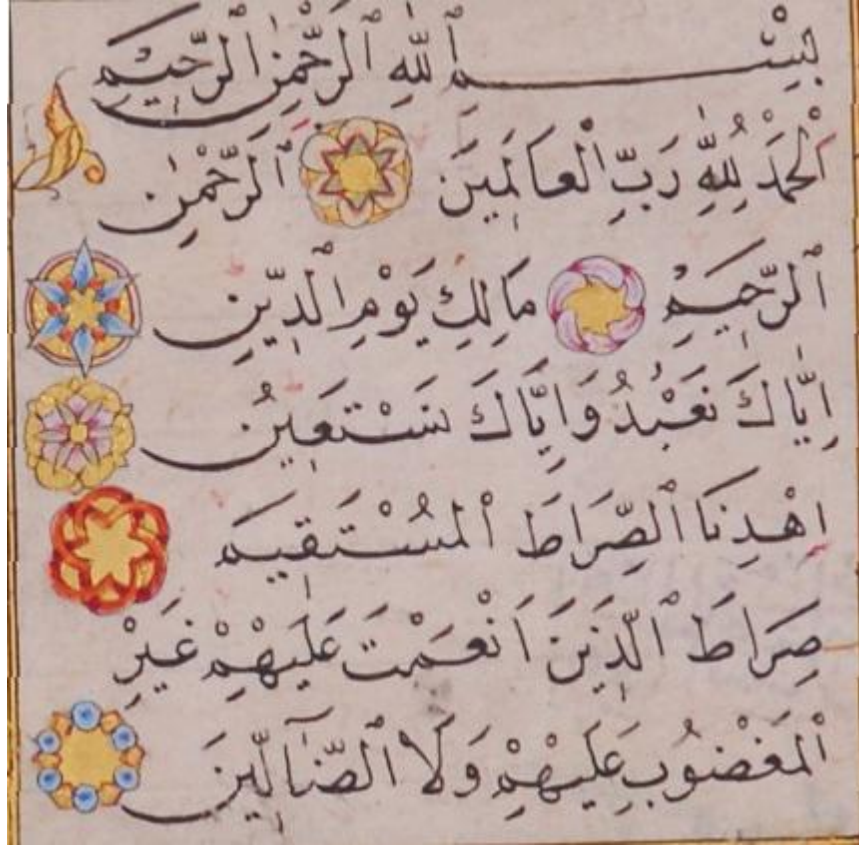 بِسْمِ ٱللّٰهِ ٱلرَّحْمٰنِ ٱلرَّحِيْمِ
اَلْحَمْدُ لِلّٰهِ رَبِّ ٱلْعَالَمِينَ ٱلرَّحْمٰنِ
ٱلرَّحِيْمِ مَالِكِ يَوْمِ ٱلدِّينِ
اِيَّاكَ نَعْبُدُ وَاِيَّاكَ نَسْتَعِينُ
اِهْدِنَا ٱلصِّرَاطَ ٱلْمُسْتَقِيمَ
صِرَاطَ ٱلَّذِينَ اَنْعَمْتَ عَلَيْهِمْ غَيْرِ
ٱلْمَغْضُوبِ عَلَيْهِمْ وَلَا ٱلضَّآلِّينَ